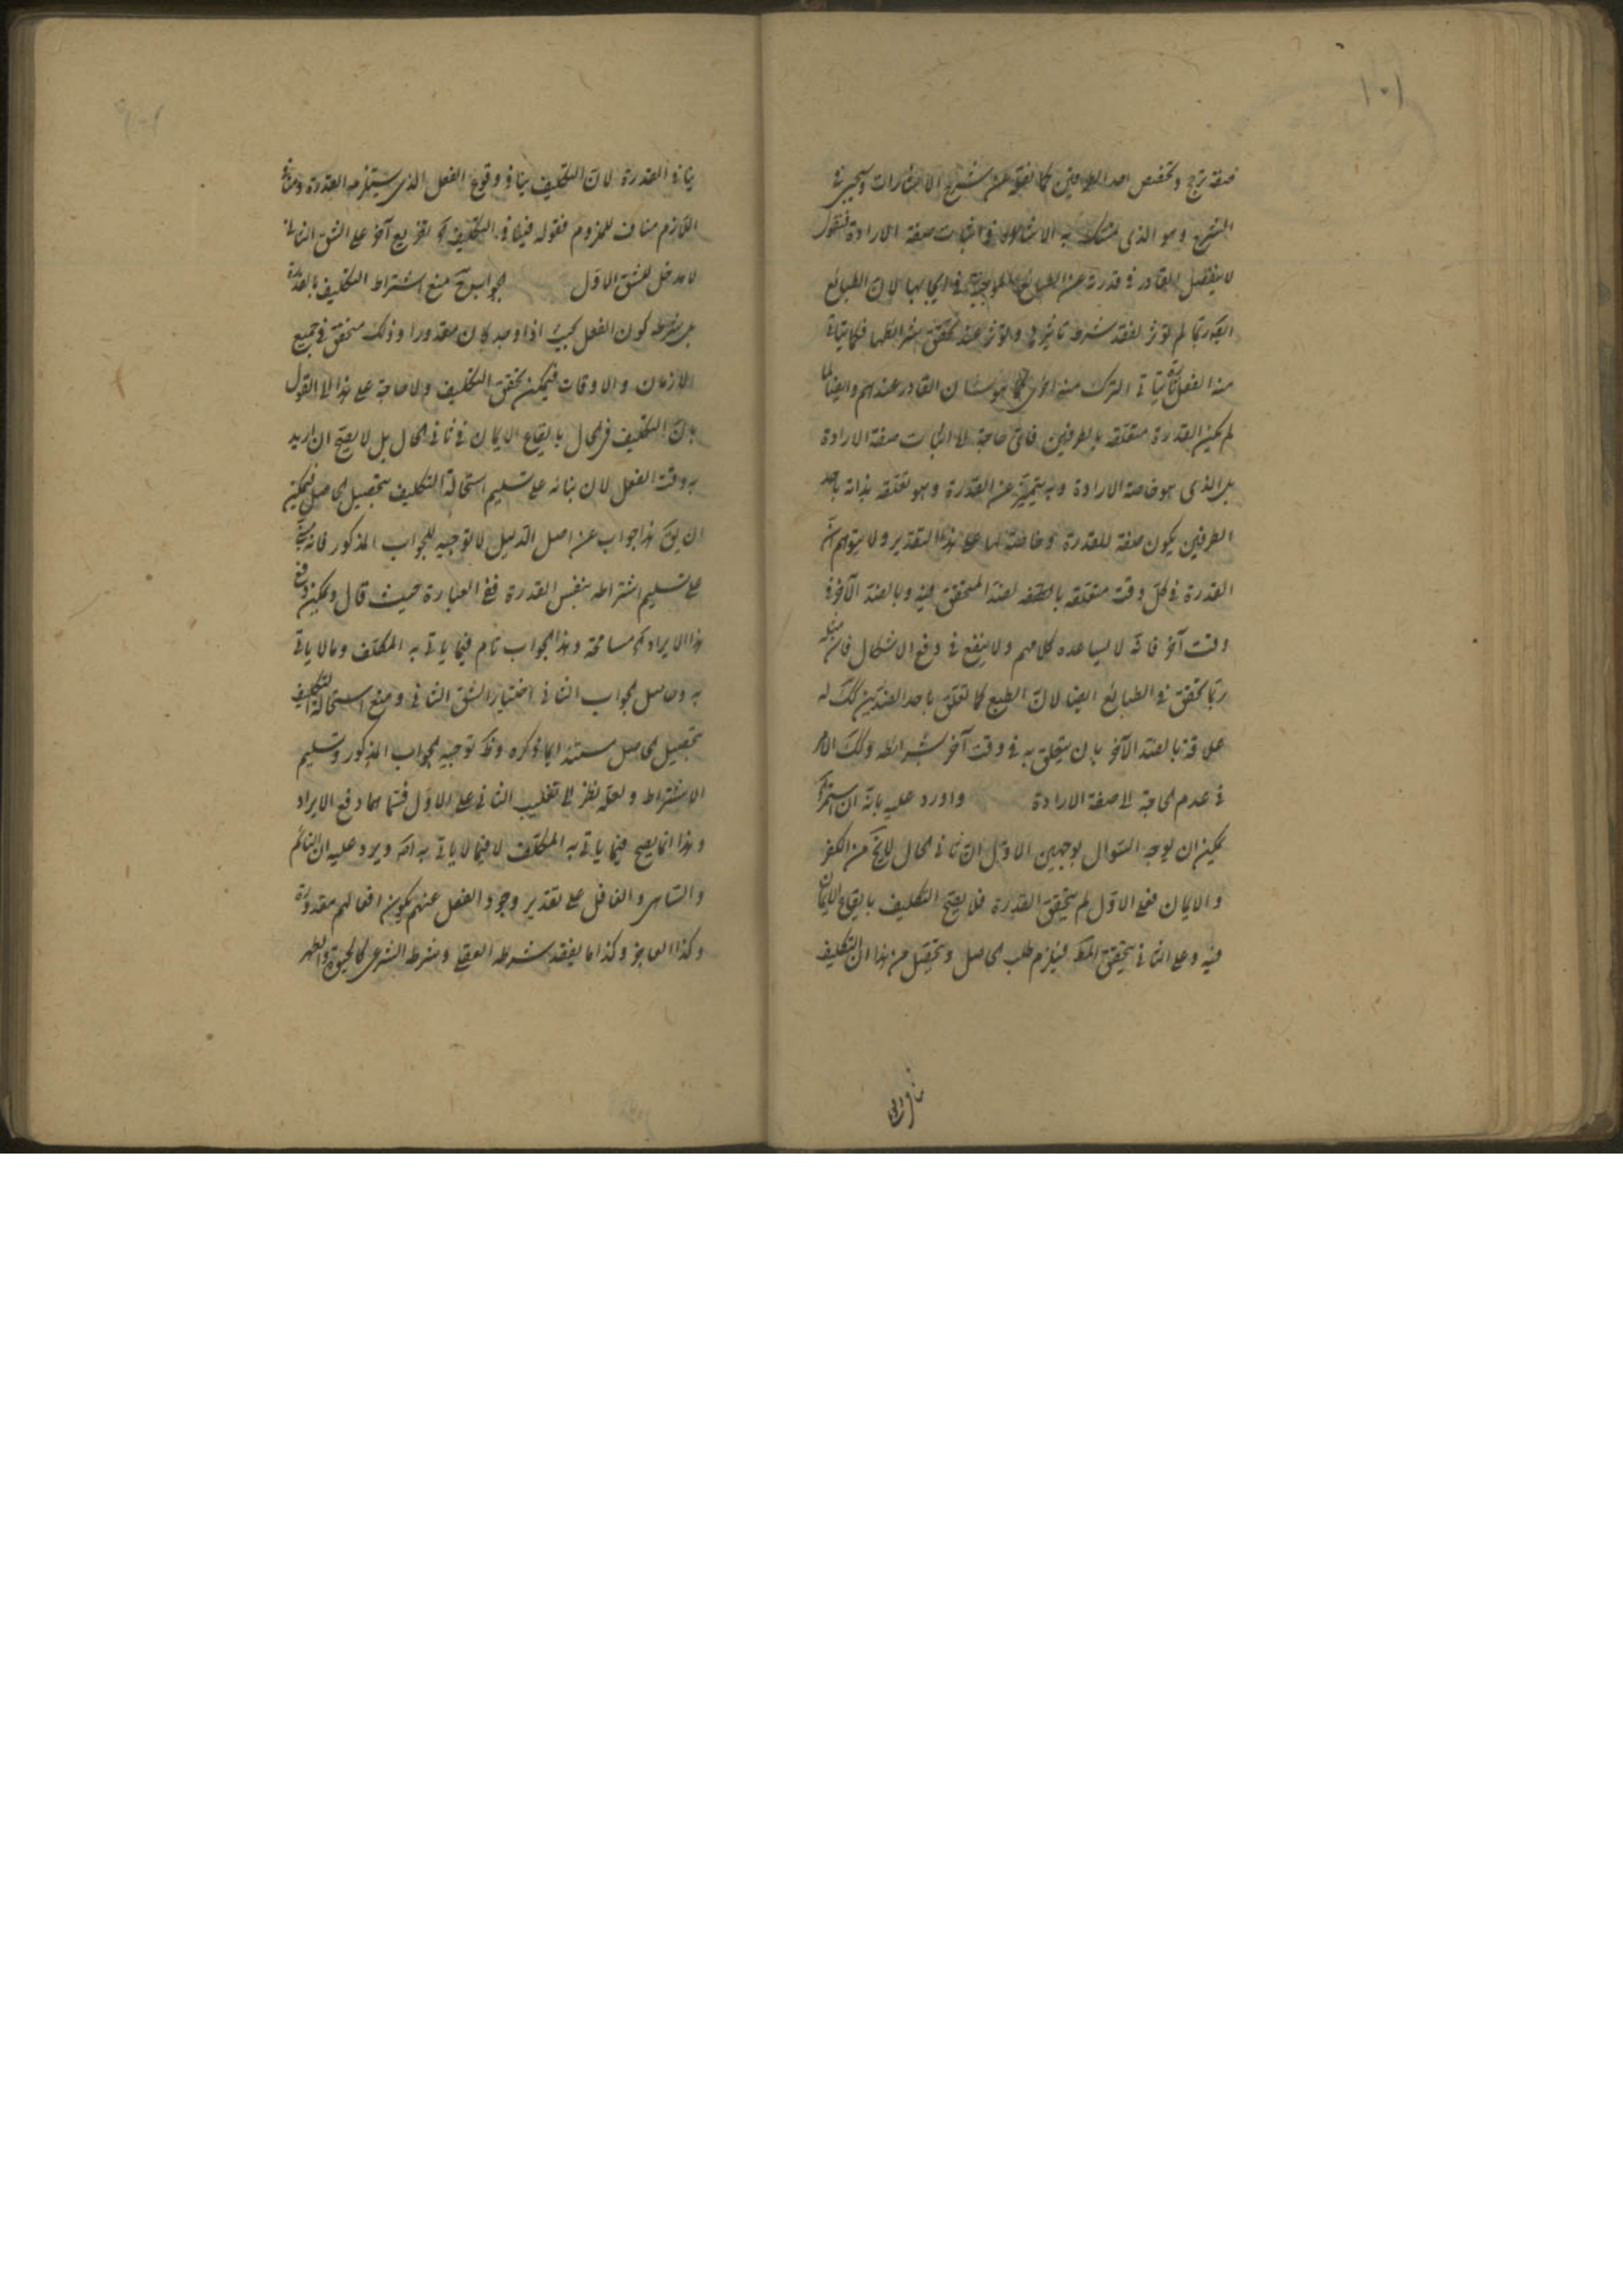 ١٠١
صفة ترجح وتخصص احد الطرفين كما نقل عن شرح الاشارات وسيجئ في
الشرح وهو الذي تمسك به الاشاعرة في اثبات صفة الارادة فنقول
لا ينفصل القادر في قدرته عن الطبائع الموجبة في ايجابها لان الطبائع
ايضا ربما لم تؤثر لفقد شرط تأثيرها وتؤثر عند تحقق شرائطها فكما يتأتى
منه الفعل تارة يتأتى الترك منه اخرى كما هو شان القادر عندهم وايضا لما
لم يكن القدرة متعلقة بالطرفين فاى حاجة الى اثبات صفة الارادة
بل الذي هو خاصة الارادة وبه يتميز عن القدرة وهو تعلقه بذاته باحد
الطرفين يكون صفة للقدرة وخاصة لها على هذا التقدير ولا يتوهم ان
القدرة في كل وقت متعلقه بالضد المتحقق فيه وبالضد الآخر في
وقت آخر فانه لا يساعده كلامهم ولا ينفع في دفع الاشكال فان مثله
ربما تحقق في الطبائع ايضا لان الطبع كما تعلق باحد الضدين كك له
علاقة بالضد الآخر بان يتعلق به في وقت آخر بشرائطه وكك الامر
في عدم الحاجة الى صفة الارادة واورد عليه بانه ان استمر
يمكن ان يوجه السؤال بوجهين الاول ان ثاني الحال لا يخ من الكفر
والايمان فعلى الاول لم يتحقق القدرة فلا يصح التكليف بايقاع الايمان
فيه وعلى الثاني يتحقق المكلف فيلزم طلب الحاصل ويتحصل من هذا ان التكليف
ينافي القدرة لان التكليف ينافي وقوع الفعل الذي يستلزمه القدرة ومنافي
اللازم مناف للملزوم فقوله فينافي التكليف تفريع آخر على الشق الثاني
لا مدخل للشق الاول الجواب ح منع اشتراط التكليف بالقدرة
بل شرطه كون الفعل بحيث اذا وجد كان مقدورا وذلك متحقق في جميع
الازمان والاوقات فيمكن تحقق التكليف ولا حاجة على هذا الى القول
بان التكليف في الحال بايقاع الايمان في ثاني الحال بل لا يصح ان اريد
به وقت الفعل لان بنائه على تسليم استحالة التكليف بتحصيل الحاصل فيمكن
ان يق هذا جواب عن اصل الدليل لا توجيه للجواب المذكور فانه مبنى
على تسليم اشتراطه بنفس القدرة ففي العبارة حيث قال ويمكن دفع
هذا الايراد مسامحة وهذا الجواب تام فيما ياتي به المكلف وما لا ياتي
به وحاصل الجواب الثاني اختيار الشق الثاني ومنع استحالة التكليف
بتحصيل الحاصل مستندا بما ذكره وذكر توجيه الجواب المذكور وتسليم
الاشتراط ولعله نظر الى تغليب الثاني على الاول فسماهما دفع الايراد
وهذا انما يصح فيما ياتي به المكلف لا فيما لا ياتي به اصلا ويرد عليه ان النائم
والساهى والغافل على تقدير وجود الفعل عنهم يكون افعالهم مقدورة
وكذا العاجز وكذا ما يفقد شرطه العقلى وشرطه الشرعى كالحيوة والطهر